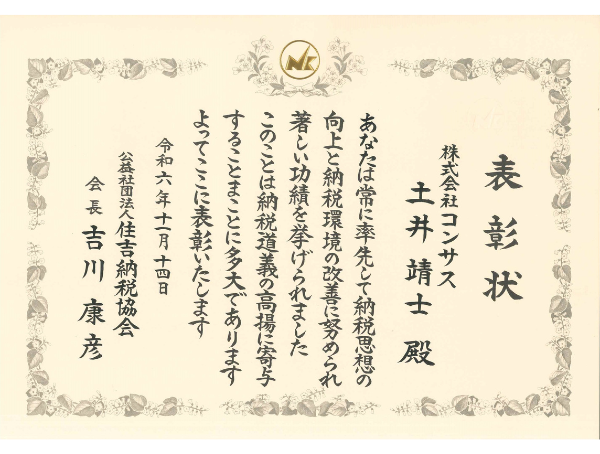 表彰状
株式会社コンサス
土井靖士殿
あなたは常に率先して納税思想の
向上と納税環境の改善に努められ
著しい功績を挙げられました
このことは納税道義の高揚に寄与
することまことに多大であります
よってここに表彰いたします
令和六年十一月十四日
公益社団法人住吉納税協会
会長 吉川康彦